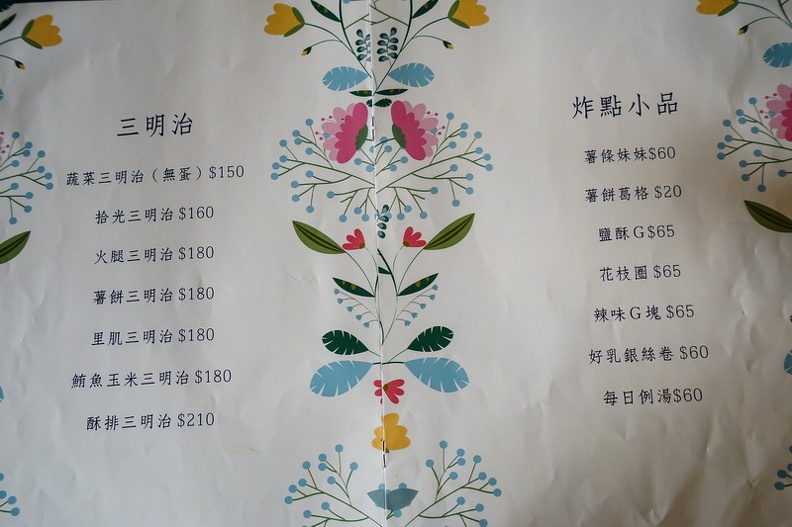 三明治
蔬菜三明治（無蛋）$150
拾光三明治 $160
火腿三明治 $180
薯餅三明治 $180
里肌三明治 $180
鮪魚玉米三明治 $180
酥排三明治 $210
炸點小品
薯條妹妹$60
薯餅葛格 $20
鹽酥G$65
花枝圈 $65
辣味G塊 $65
好乳銀絲卷 $60
每日例湯$60